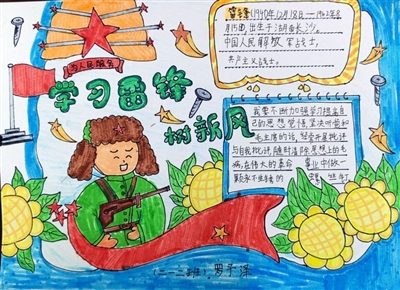 为人民服务
学习雷锋
树新风
雷锋(1940年12月18日一1962年8
月15日),出生于湖南长沙。
中国人民解放军战士,
共产主义战士。
我要不断加强学习提高自
己的思想觉悟,坚决听党和
毛主席的话,经常开展批评
与自我批评,随时清除思想上的毛
病,在伟大的革命 事业中做一
颗永不生锈的 螺丝钉
(二一二班) 罗予泽